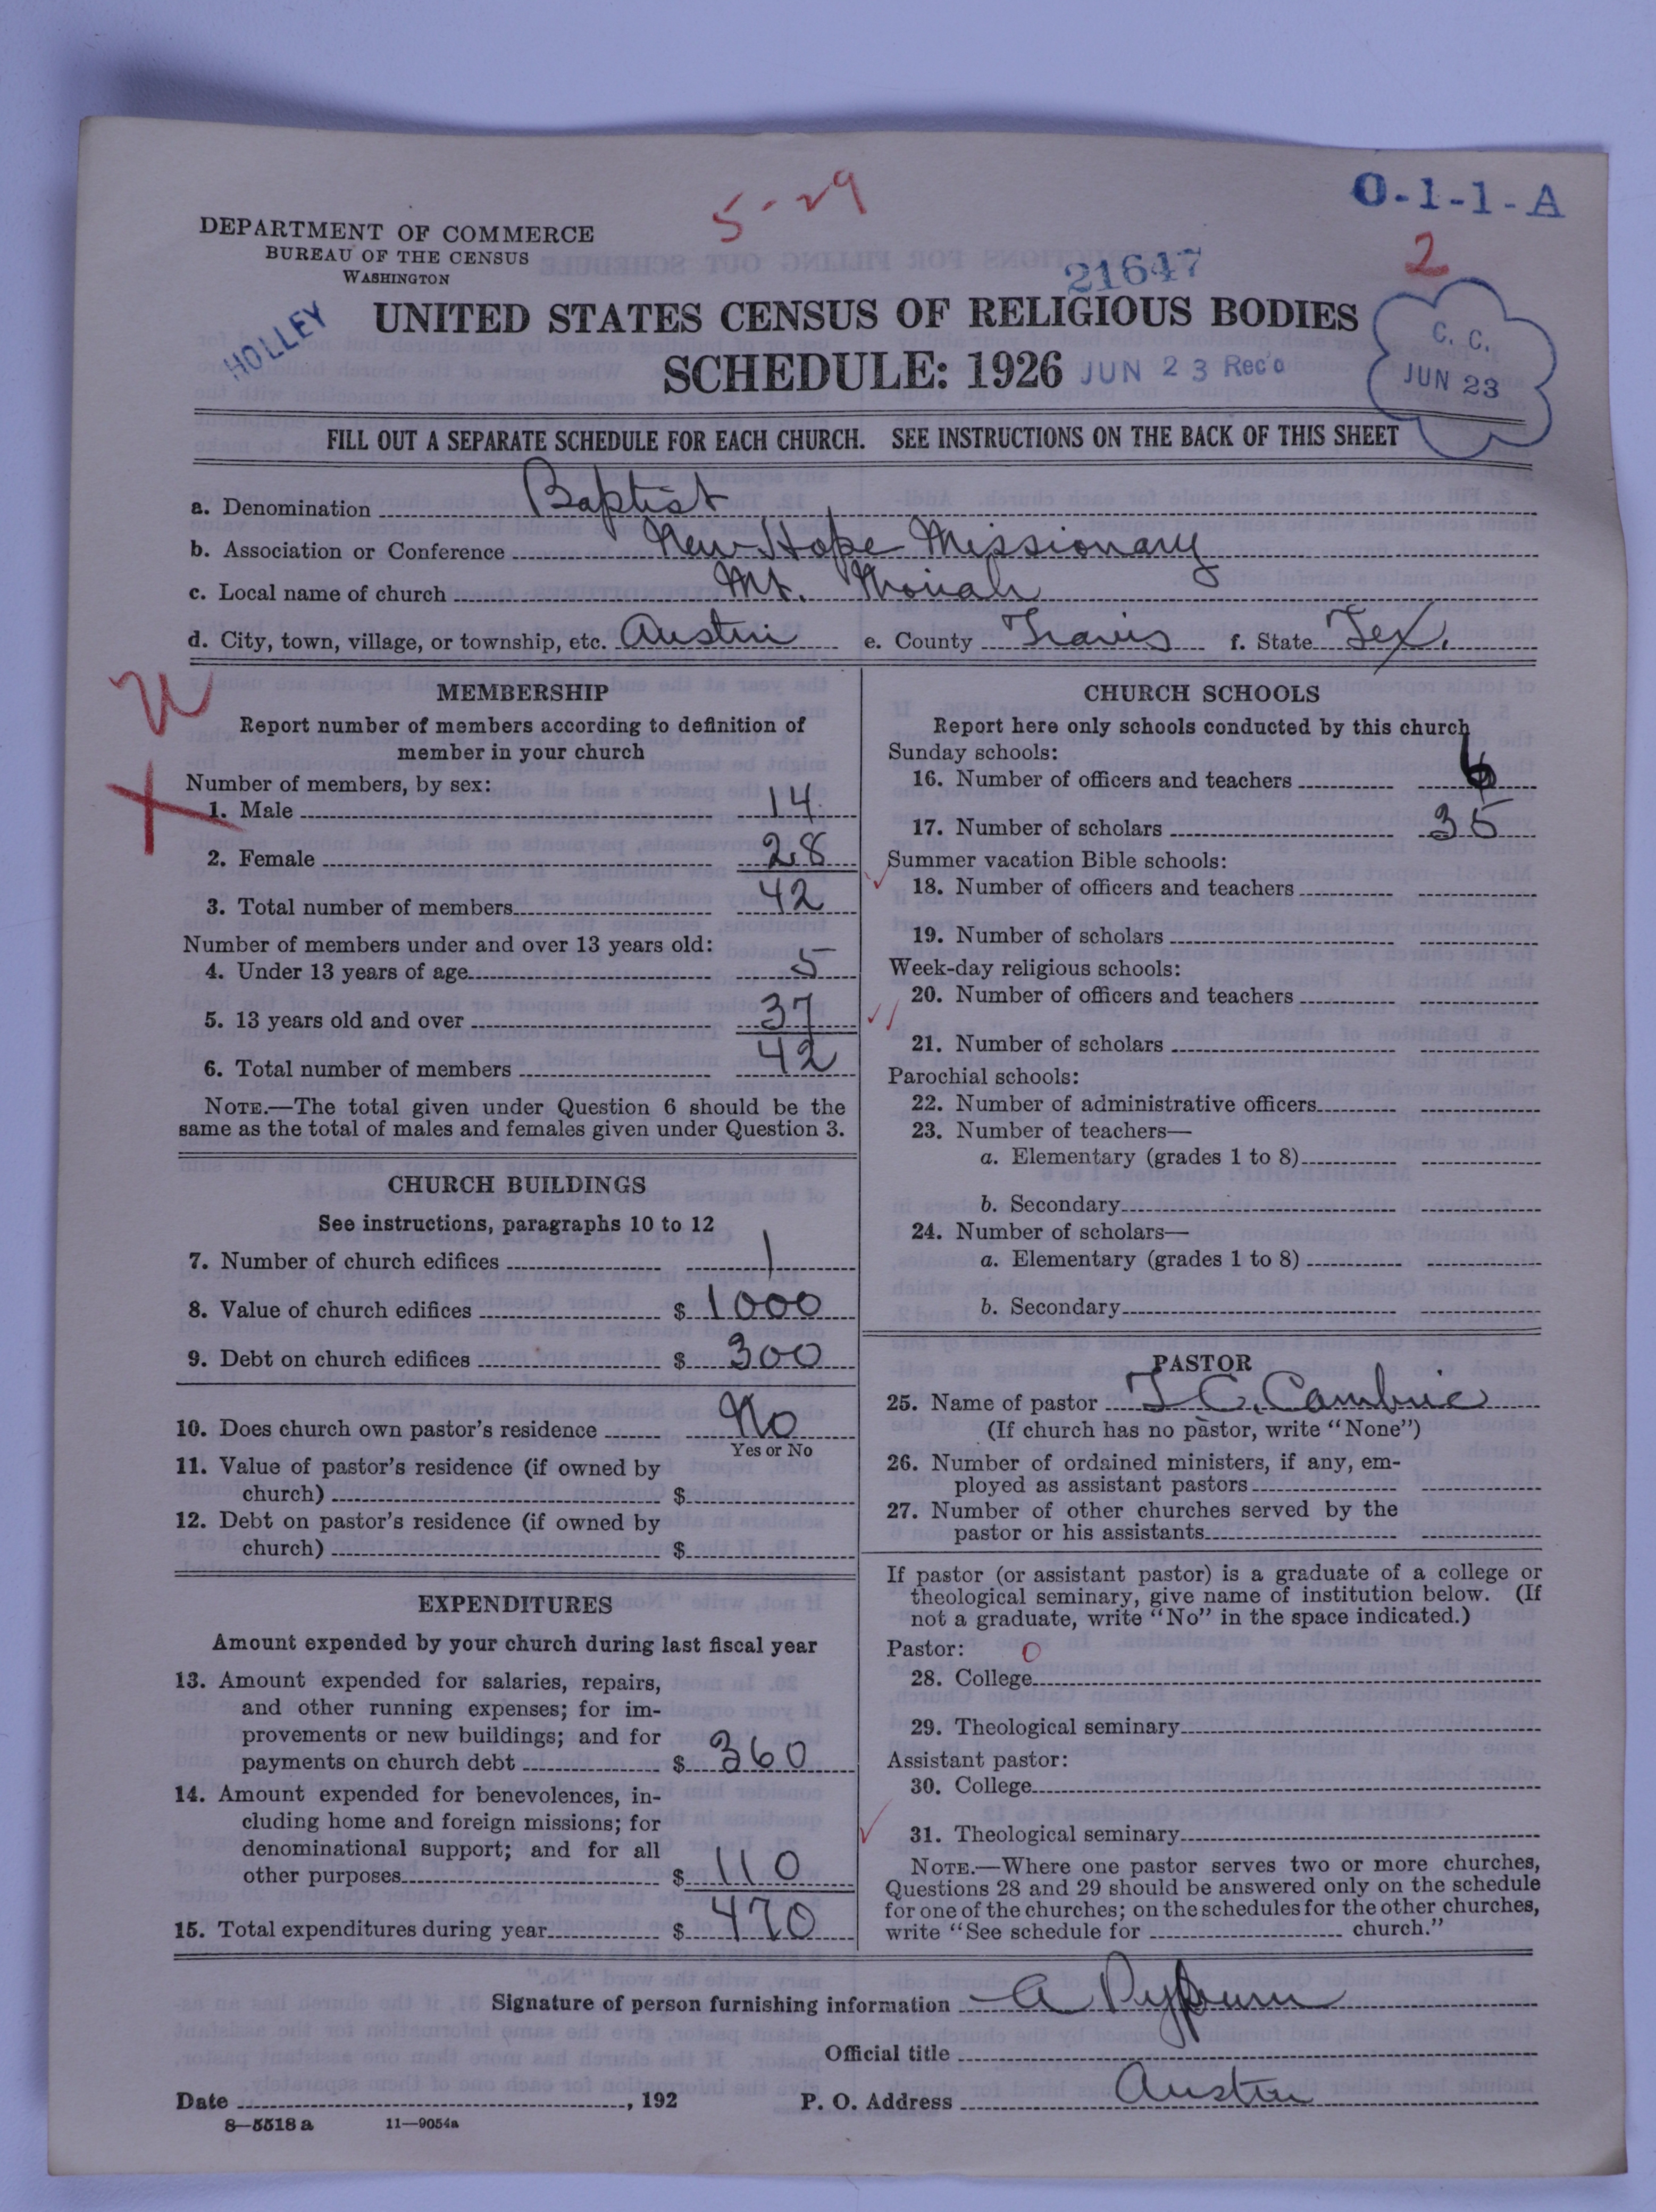 5-29
O-1-1-A
DEPARTMENT OF COMMERCE
BUREAU OF THE CENSUS
WASHINGTON
21647
2
HOLLEY
UNITED STATES CENSUS OF RELIGIOUS BODIES
SCHEDULE: 1926
JUN 23 Rec'd
C. C.
JUN 23
FILL OUT A SEPARATE SCHEDULE FOR EACH CHURCH. SEE INSTRUCTIONS ON THE BACK OF THIS SHEET
a. Denomination Baptist
b. Association or Conference New Hope Missionary
c. Local name of church Mt. Moriah
d. City, town, village, or township, etc. Austin e. County Travis f. State Tex.
MEMBERSHIP
Report number of members according to definition of
member in your church
Number of members, by sex:
1. Male 14
2. Female 28
3. Total number of members 42
Number of members under and over 13 years old:
4. Under 13 years of age 5
5. 13 years old and over 37
6. Total number of members 42
NOTE.—The total given under Question 6 should be the
same as the total of males and females given under Question 3.
CHURCH BUILDINGS
See instructions, paragraphs 10 to 12
7. Number of church edifices 1
8. Value of church edifices $ 1000
9. Debt on church edifices $ 300
10. Does church own pastor's residence No
Yes or No
11. Value of pastor's residence (if owned by
church) $
12. Debt on pastor's residence (if owned by
church) $
EXPENDITURES
Amount expended by your church during last fiscal year
13. Amount expended for salaries, repairs,
and other running expenses; for im-
provements or new buildings; and for
payments on church debt $ 360
14. Amount expended for benevolences, in-
cluding home and foreign missions; for
denominational support; and for all
other purposes $ 110
15. Total expenditures during year $ 470
CHURCH SCHOOLS
Report here only schools conducted by this church
Sunday schools:
16. Number of officers and teachers 6
17. Number of scholars 35
Summer vacation Bible schools:
18. Number of officers and teachers
19. Number of scholars
Week-day religious schools:
20. Number of officers and teachers
21. Number of scholars
Parochial schools:
22. Number of administrative officers
23. Number of teachers—
a. Elementary (grades 1 to 8)
b. Secondary
24. Number of scholars—
a. Elementary (grades 1 to 8)
b. Secondary
PASTOR
25. Name of pastor J C. Cambric
(If church has no pastor, write "None")
26. Number of ordained ministers, if any, em-
ployed as assistant pastors
27. Number of other churches served by the
pastor or his assistants
If pastor (or assistant pastor) is a graduate of a college or
theological seminary, give name of institution below. (If
not a graduate, write "No" in the space indicated.)
Pastor: 0
28. College
29. Theological seminary
Assistant pastor:
30. College
31. Theological seminary
NOTE.—Where one pastor serves two or more churches,
Questions 28 and 29 should be answered only on the schedule
for one of the churches; on the schedules for the other churches,
write "See schedule for church."
Signature of person furnishing information A
Official title
Date , 192 P. O. Address Austin
8—5518 a 11—9054a